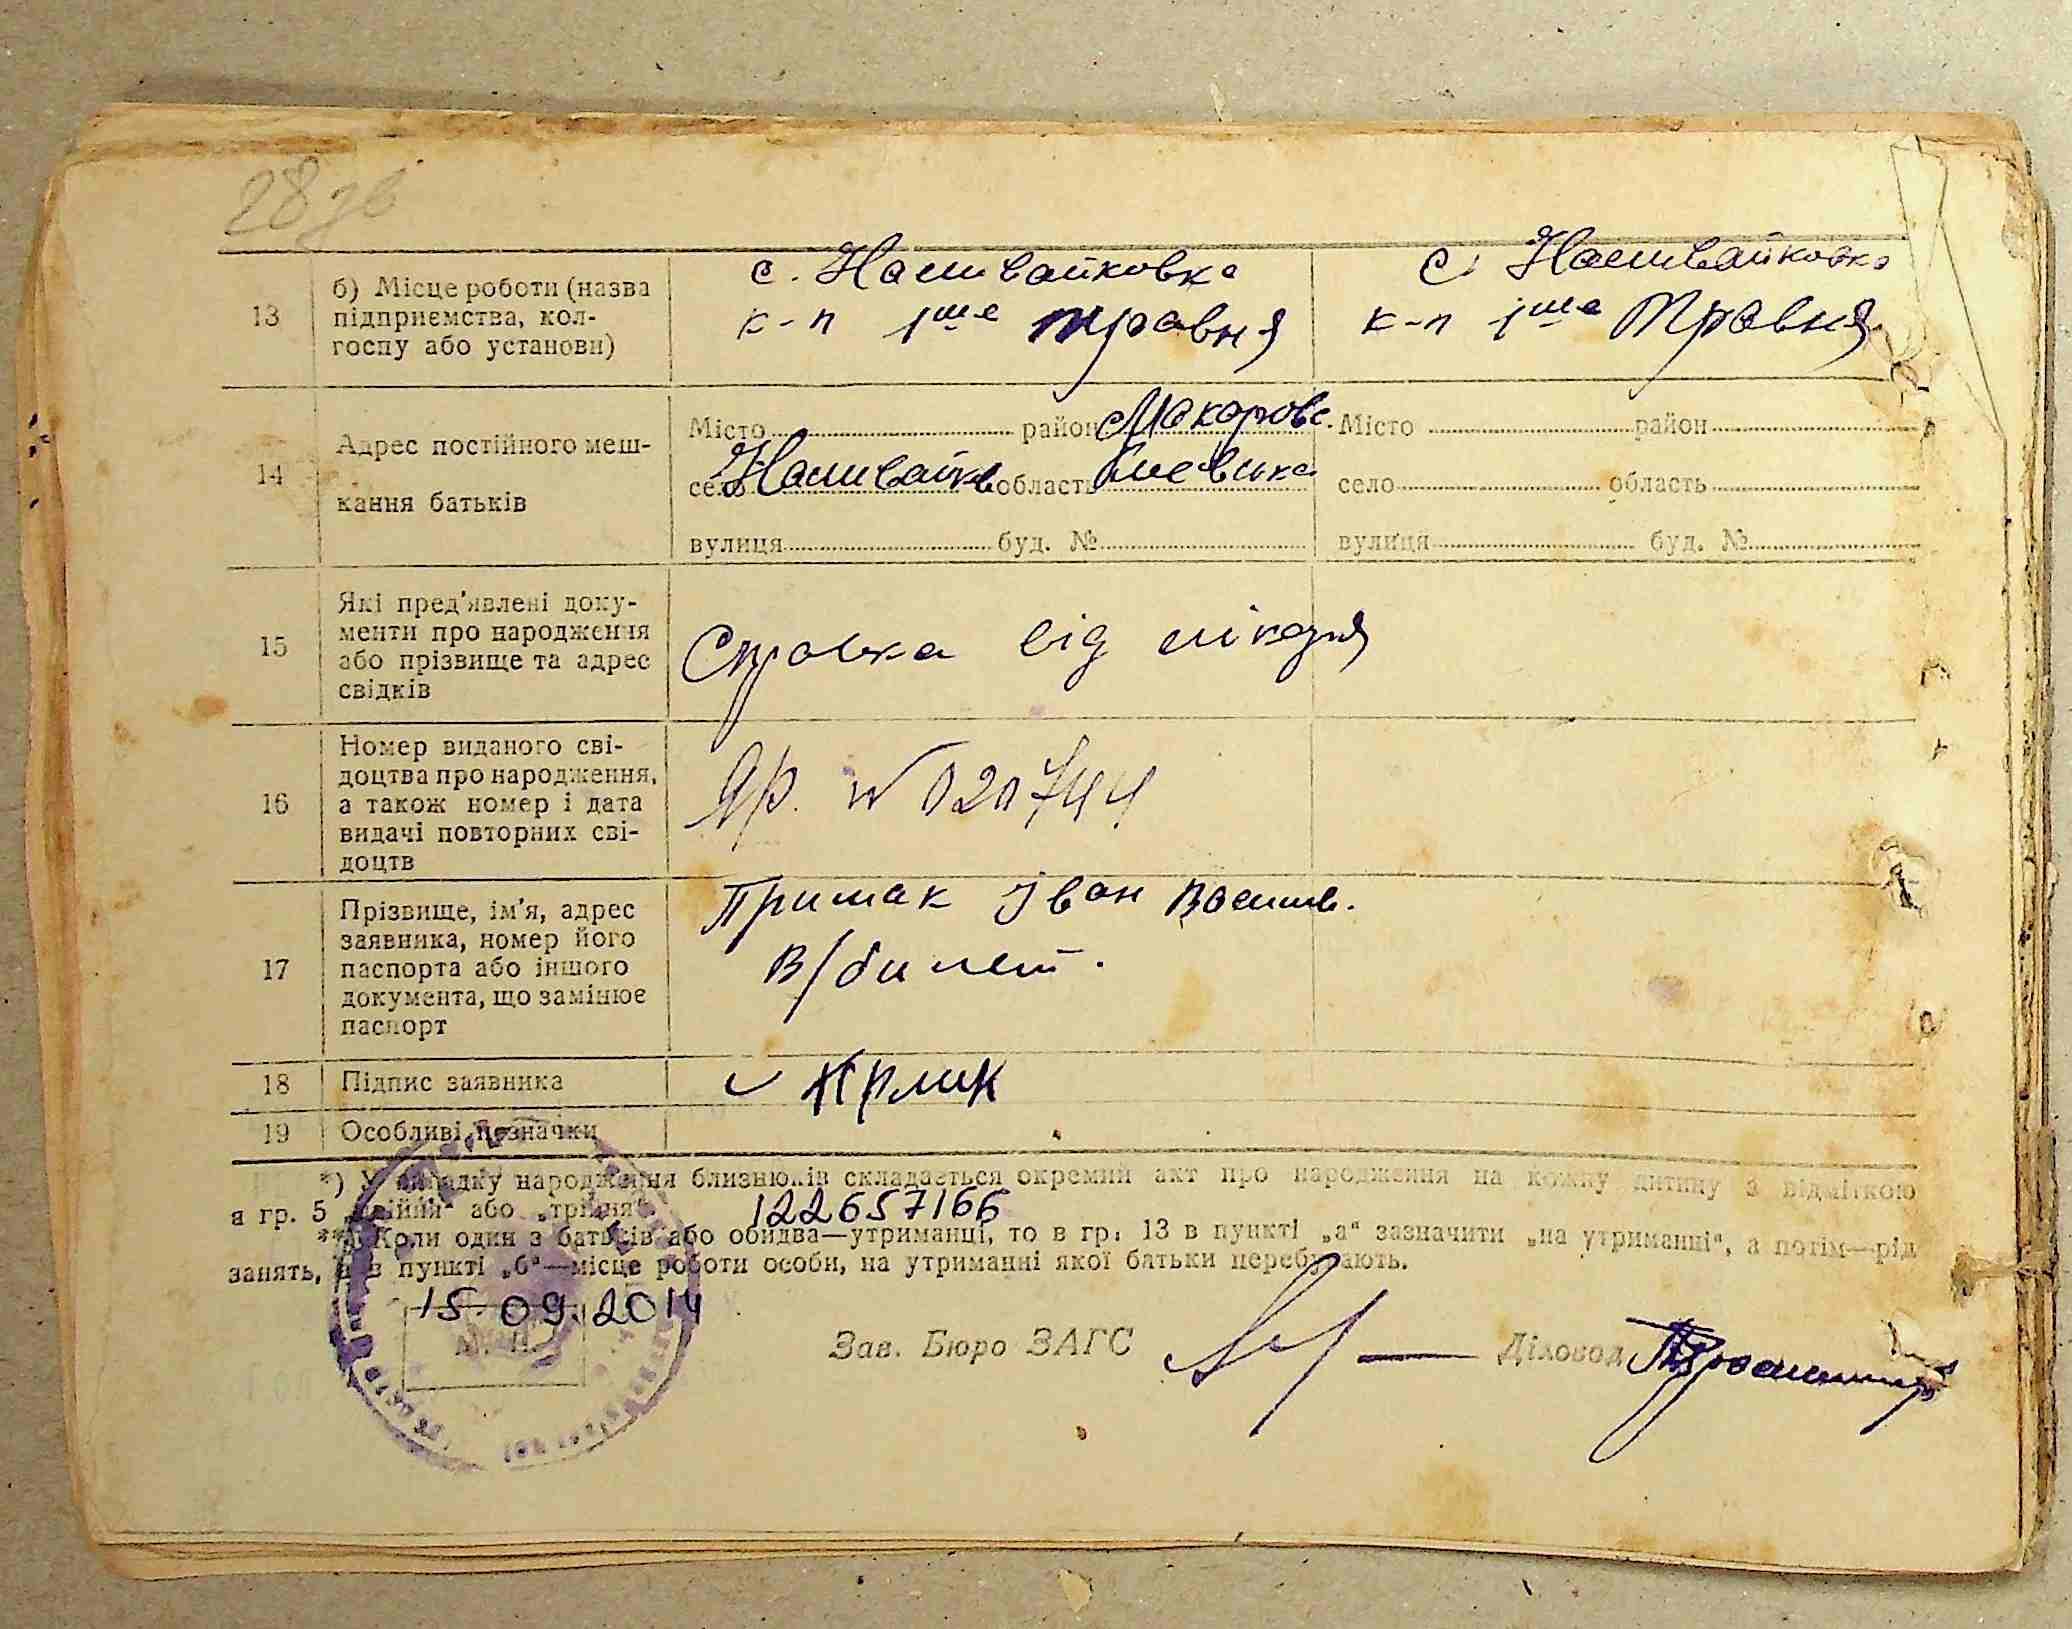 28 зв
13
б) Місце роботи (назва
підприємства, кол-
госпу або установи)
с. Наливайковка
к-п 1ше травня
с. Наливайковка
к-п 1ше Травня
14
Адрес постійного меш-
кання батьків
Місто район Макаровс.
село Наливайків область Киевська
вулиця буд. №
Місто район
село область
вулиця буд. №
15
Які пред'явлені доку-
менти про народження
або прізвище та адрес
свідків
Справка від лікаря
16
Номер виданого сві-
доцтва про народження,
а також номер і дата
видачі повторних сві-
доцтв
№ 020744
17
Прізвище, ім'я, адрес
заявника, номер його
паспорта або іншого
документа, що замінює
паспорт
Примак Іван Васильв.
в/билет.
18
Підпис заявника
19
Особливі позначки
*) У випадку народження близнюків складається окремий акт про народження на кожну дитину з відміткою
в гр. 5 „двійня“ або „трійня“
122657166
**) Коли один з батьків або обидва—утриманці, то в гр. 13 в пункті „а“ зазначити „на утриманні“, а потім—рід
занять, а в пункті „б“—місце роботи особи, на утриманні якої батьки перебувають.
15.09.2014
М. П.
Зав. Бюро ЗАГС
Діловод